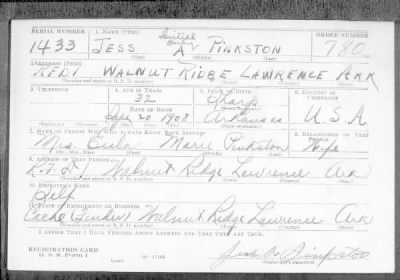 SERIAL NUMBER 1. NAME (Print) ORDER NUMBER
1433 JESS Initial only A PINKSTON 780
(First) (Middle) (Last)
2. ADDRESS (Print)
RFD1 WALNUT RIDGE LAWRENCE ARK
3. TELEPHONE 4. AGE IN YEARS 5. PLACE OF BIRTH 6. COUNTRY OF CITIZENSHIP
32 Sharp
DATE OF BIRTH
20 1908 Arkansas U.S.A
7. NAME OF PERSON WHO WILL ALWAYS KNOW YOUR ADDRESS 8. RELATIONSHIP OF THAT PERSON
Mrs. Eula Marie Pinkston Wife
9. ADDRESS OF THAT PERSON
R.F.D.1 Walnut Ridge Lawrence Ark
10. EMPLOYER'S NAME
Self
11. PLACE OF EMPLOYMENT OR BUSINESS
Cache Walnut Ridge Lawrence Ark
I AFFIRM THAT I HAVE VERIFIED ABOVE ANSWERS AND THAT THEY ARE TRUE.
REGISTRATION CARD
D. S. S. Form 1
Jess A. Pinkston